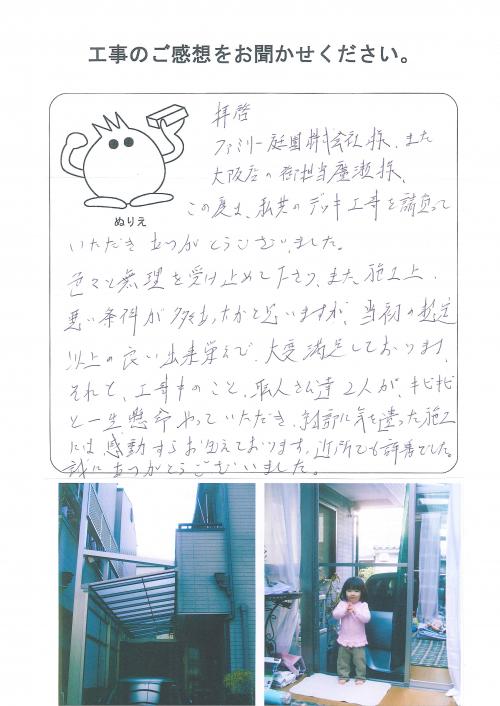 工事のご感想をお聞かせください。
拝啓
ファミリー庭園株式会社様、また
大阪店の御担当廣瀬様、
ぬりえ
この度は、私共のデッキ工事を請負って
いただきありがとうございました。
色々と無理を受け止めて下さり、また、施工上、
悪い条件が多かったかと思いますが、当初の想定
以上の良い出来栄えで、大変満足しております。
それと、工事中のこと、職人さん達2人が、キビキビ
と一生懸命やっていただき、細部に気を遣った施工
には感動すらお伝えております。近所でも評判でした。
誠にありがとうございました。